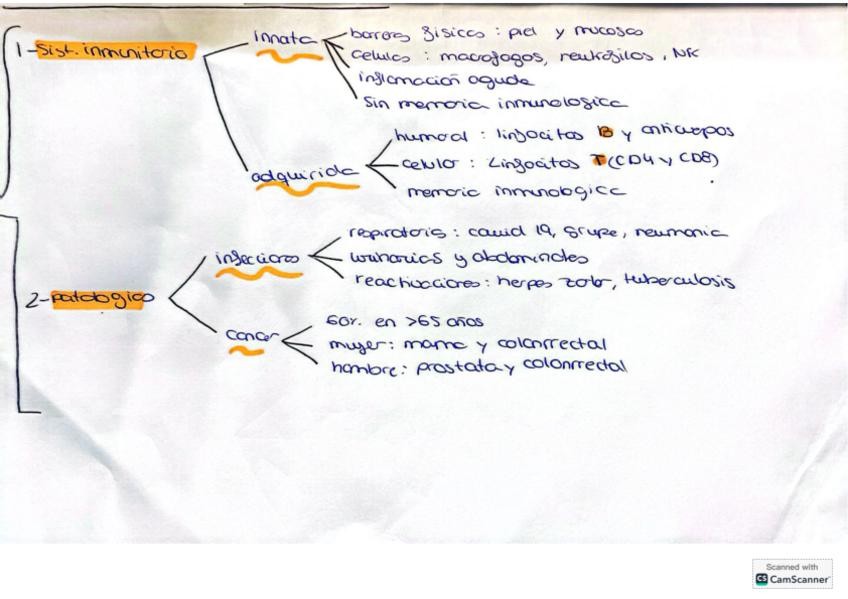 innata
barreras físicas : piel y mucosas
1-Sist. inmunitario
celulas : macrofagos, neutrófilos, NK
inflamación aguda
Sin memoria inmunologica
humoral : linfocitos B y anticuerpos
adquirida
celular : Linfocitos T (CD4 y CD8)
memoria inmunologica
respiratoria : covid 19, gripe, neumonia
infeccioso
urinarias y abdominales
reactivaciones : herpes zoster, tuberculosis
2-patologico
60%. en >65 años
cancer
mujer : mama y colonrrectal
hombre : prostata y colonrrectal
Scanned with
CS CamScanner